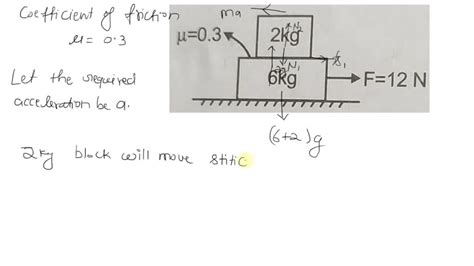 Coefficient of friction
μ = 0.3
Let the required
acceleration be a.
ma
μ=0.3
2kg
N₁
6kg
N₁
F=12 N
(6+2)g
2kg block will move stitic